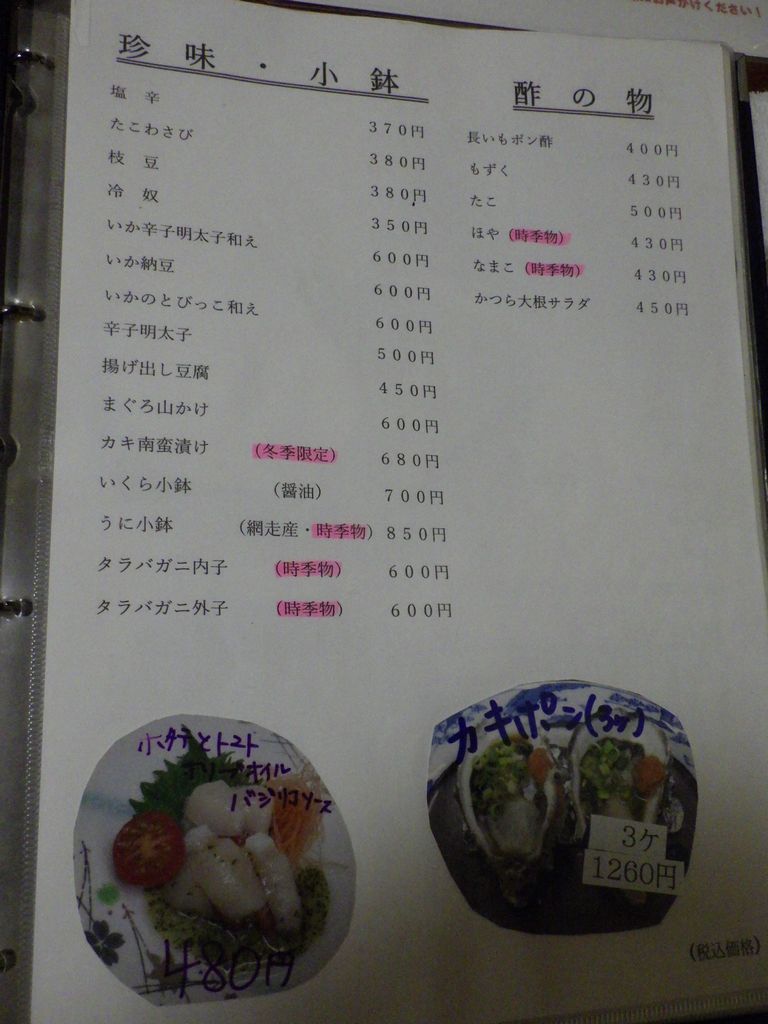 お声がけください！
珍味・小鉢
塩辛 370円
たこわさび 380円
枝豆 380円
冷奴 350円
いか辛子明太子和え 600円
いか納豆 600円
いかのとびっこ和え 600円
辛子明太子 500円
揚げ出し豆腐 450円
まぐろ山かけ 600円
カキ南蛮漬け (冬季限定) 680円
いくら小鉢 (醤油) 700円
うに小鉢 (網走産・時季物) 850円
タラバガニ内子 (時季物) 600円
タラバガニ外子 (時季物) 600円
酢の物
長いもポン酢 400円
もずく 430円
たこ 500円
ほや (時季物) 430円
なまこ (時季物) 430円
かつら大根サラダ 450円
ホタテとトマト
オリーブオイル
バジリコソース
480円
カキポン(3ヶ)
3ケ
1260円
(税込価格)